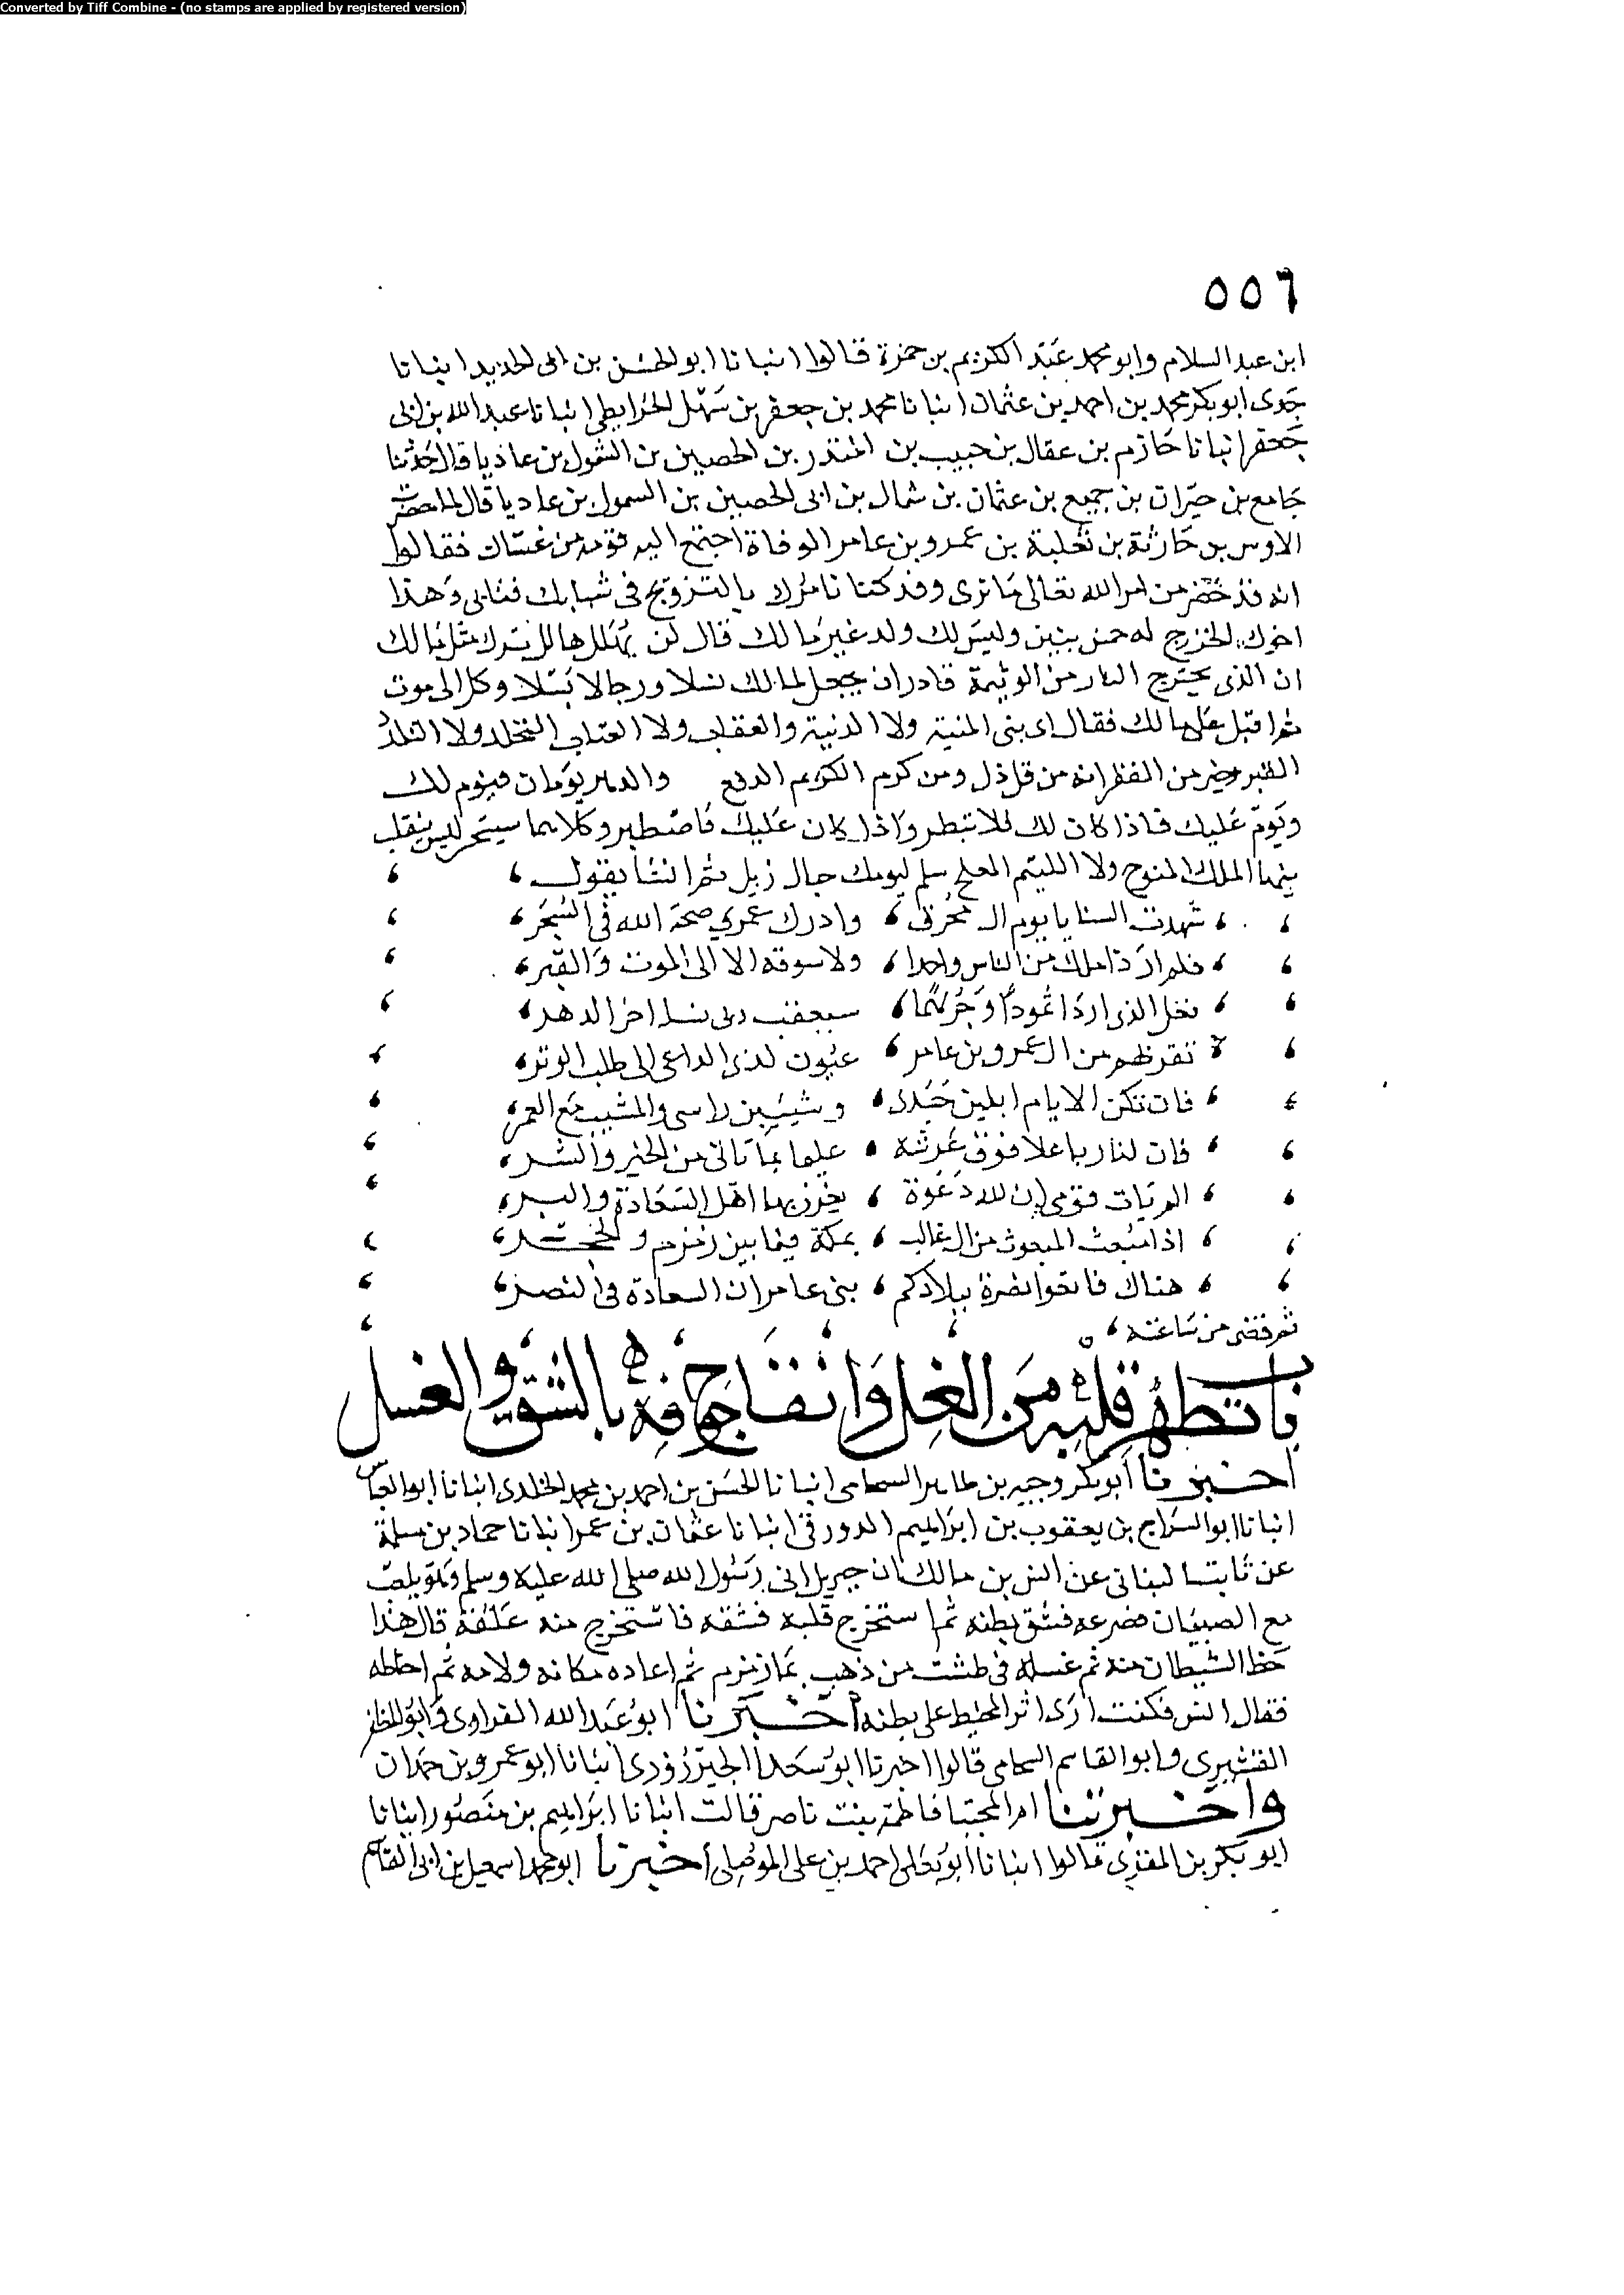 Converted by Tiff Combine - (no stamps are applied by registered version)
٥٥٦
ابن عبد السلام وابو محمد عَبْد الكريم بن حمزة قالوا انبانا ابو الحسَن بن ابى الحديد انبانا
جَدى ابو بكر محمد بن احمد بن عثمان انبانا محمد بن جعفر بن سَهْل الخرايطى انبانا عبد الله بن ابى
جَعفر انبانا حَازم بن عقال بن حبيب بن المنذر بن الحصين بن السَّمول بن عاديا قال حَدثنا
جَامع بن حيران بن جميع بن عثمان بن شمال بن ابى الحصين بن السمول بن عاديا قال لما حضرت
الاوس بن حَارثة بن ثعلبة بن عمرو بن عامر الوفاة اجتمع اليه قومه من غسّان فقالوا
انه قد حَضر من امر الله تعالى مَا ترى وقد كنا نامرُك بالتزويج فى شبابك فتابى وَهذا
اخوك الخزرج له خمس بنين وليسَ لك ولد غير مَالك قال لن يهلك هالك ترك مثل مَالك
ان الذى يخرج النار من الوثيمة قادر ان يجعل لمالك نسلا ورجالا بَسْلا وكل الى موت
ثم اقبل عَلى مالك فقال اى بنى المنية ولا الدنية والعقاب ولا العتاب التجلد ولا التلدُ
القبر خير من الفقر انه من قل ذل ومن كرم الكريم الدفع والدهر يَومَان فيَوم لك
ويَومٌ عَليك فاذا كان لك فلا تبطر وَاذا كان عَليكَ فَاصْطبر وكلاهما سينحسر ليسَ يفلت
منهما الملك المتوج ولا اللئيم المعلهج سلم ليومك حيال ربك ثم انشا يقول
شهدت السبايا يوم ال محُرق وادرك عمرى صيحَة الله فى الحجر
فلم ارَ ذا ملك من الناس واحدا ولا سوقه الا الى الموت وَالقبر
فعل الذى اردَا ثمودًا وجُرهُمًا سيعقب لى نسلا اخر الدهر
تقربهم من ال عمرو بن عامر عيُون لدى الداعى الى طلب الوتر
فان تكن الايام ابلين جدّتى وشيَّبْن راسى والمشيب مَع العمر
فان لنا ربا علا فوق عَرشه عليما بمَا ناتى من الخير وَالشر
الم يَات قومى ان لله دَعوة يفوز بها اهل السَّعَادة والبر
اذا بُعث المبعوث من ال غالب بمكة فيمَا بين زمزم والحجر
هناك فابغوا نصرة ببلادكم بنى عامر ان السعادة فى النصر
ثم قضى من سَاعته
باب تطهر قلبه مَن الغل وَانقاء جوفه بالشق والغسل
اخبرنا ابو بكر وجيه بن طاهر السحامى انبانا الحَسَن بن احمد بن محمد الخلدى انبانا ابو العباس
انبانا ابو السرَاج بن يعقوب بن ابرَاهيم الدورقى انبانا عثمان بن عمر انبانا حماد بن سلمة
عن ثابت البنانى عن انس بن مالك ان جبريل اتى رسُول الله صلى الله عليه وسلم وَهو يلعَب
مع الصبيَان فصرعه فشق بطنه ثم استخرج قلبه فشقه فاستخرج منه عَلقة قال هَذا
حَظ الشيطان منه ثم غسله فى طشت من ذهب بمَا زمزم ثم اعاده مكانه ولامه ثم احاطه
فقال انس فكنت ارَى اثر المخيط على بطنه اخبرنا ابو عَبد الله الفراوى وَابو المظفر
القشيرى وابو القاسم السحامى قالوا اخبرنا ابو سَعد الجنزرُودى انبانا ابو عمرو بن حمدَان
واخبرتنا ام المجتبا فاطمة بنت ناصر قالت انبانا ابرَاهيم بن منصُور انبانا
ابو بَكر بن المقرى قالوا انبانا ابو يَعلى احمد بن على الموصلى اخبرنا ابو محمد اسمعيل بن ابى القاسم